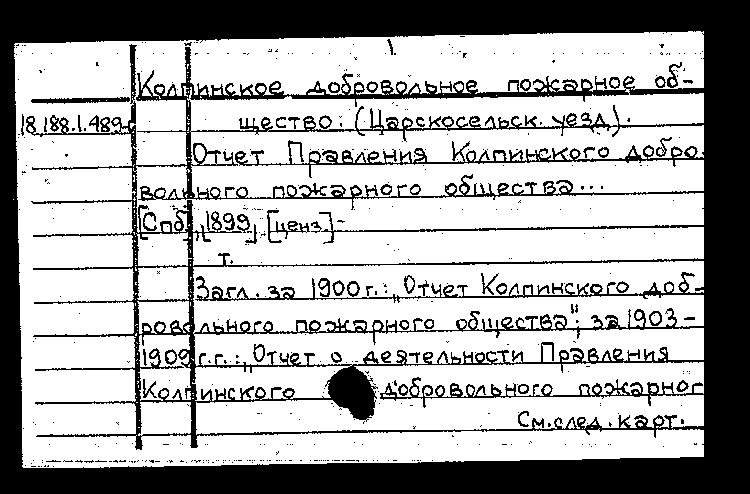 Колпинское добровольное пожарное об-
18.188.1.489
щество. (Царскосельск. уезд).
Отчет Правления Колпинского добро
вольного пожарного общества...
[Спб], [1899] [ценз]-
т.
Загл. за 1900 г.: „Отчет Колпинского доб-
ровольного пожарного общества"; за 1903-
1909 г.г.: „Отчет о деятельности Правления
Колпинского добровольного пожарног
См. след. карт.